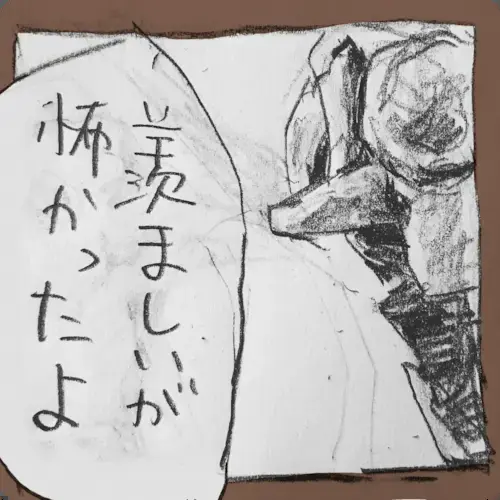 羨ましいが
怖かったよ